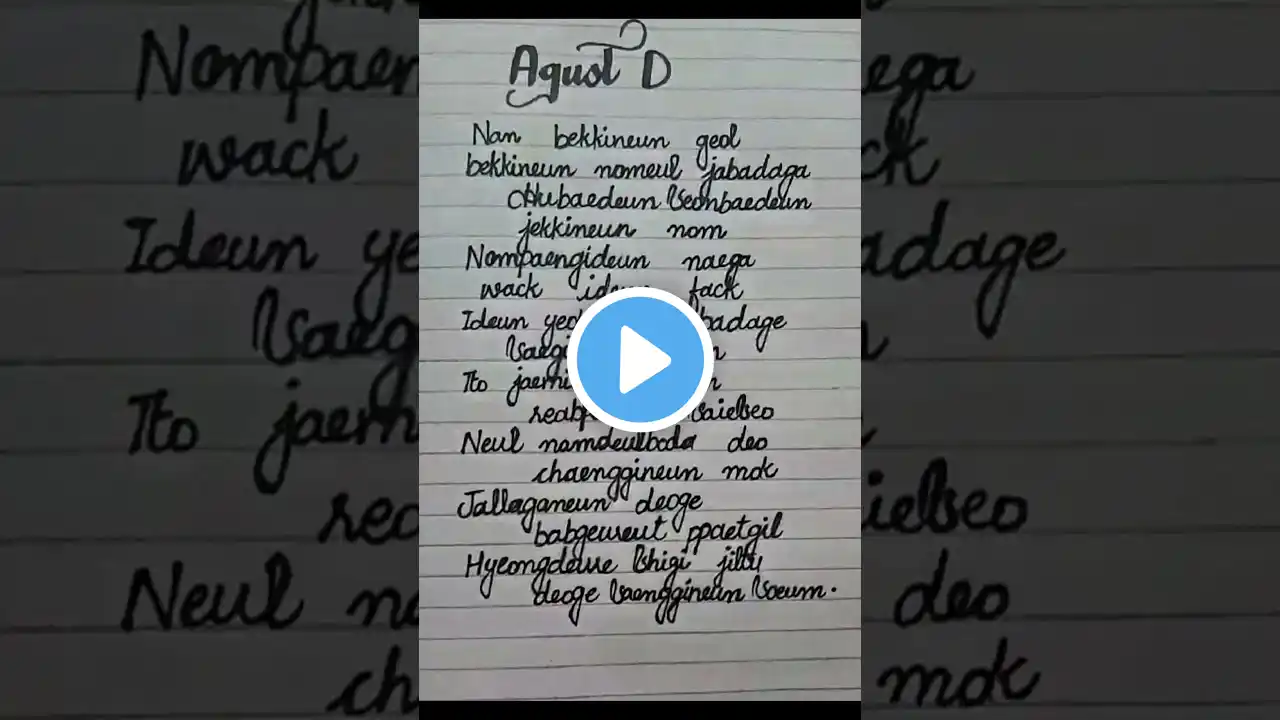 Agust D
Nan bekkineun geol
bekkineun nomeul jabadaga
Hubaedeun Seonbaedeun
jekkineun nom
Nompaengideun naega
wack fack
Ideun
Tto
saieseo
Neul namdeulboda deo
chaenggineun mok
Jallaganeun deoge
babgeureut ppaetgil
Hyeongdeure shigi jiltu
deoge saenggineun soeum.